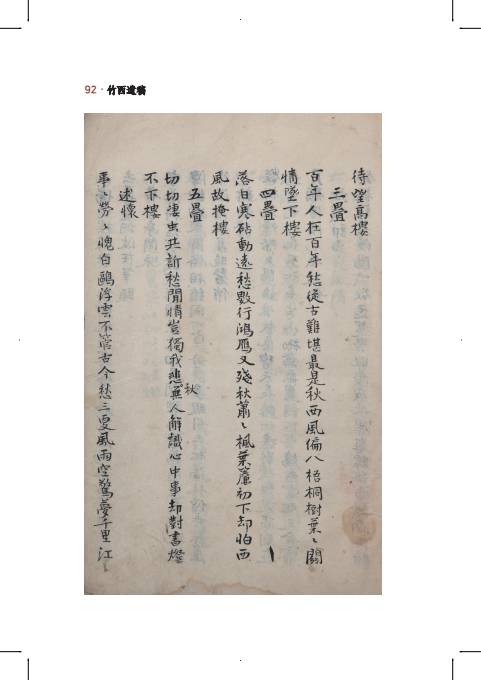 92 · 竹西遺稿
待望高樓
三疊
百年人在百年愁從古難堪最是秋西風偏入梧桐樹葉〻關
情墜下樓
四疊
落日寒砧動遠愁數行鴻雁又殘秋蕭〻楓葉簾初下却怕西
風故掩樓
五疊
切切凄虫共訴愁閒情豈獨我悲秋無人解識心中事却對書燈
不下樓
述懷
事〻勞〻愧白鷗浮雲不管古今愁三更風雨空驚夢千里江